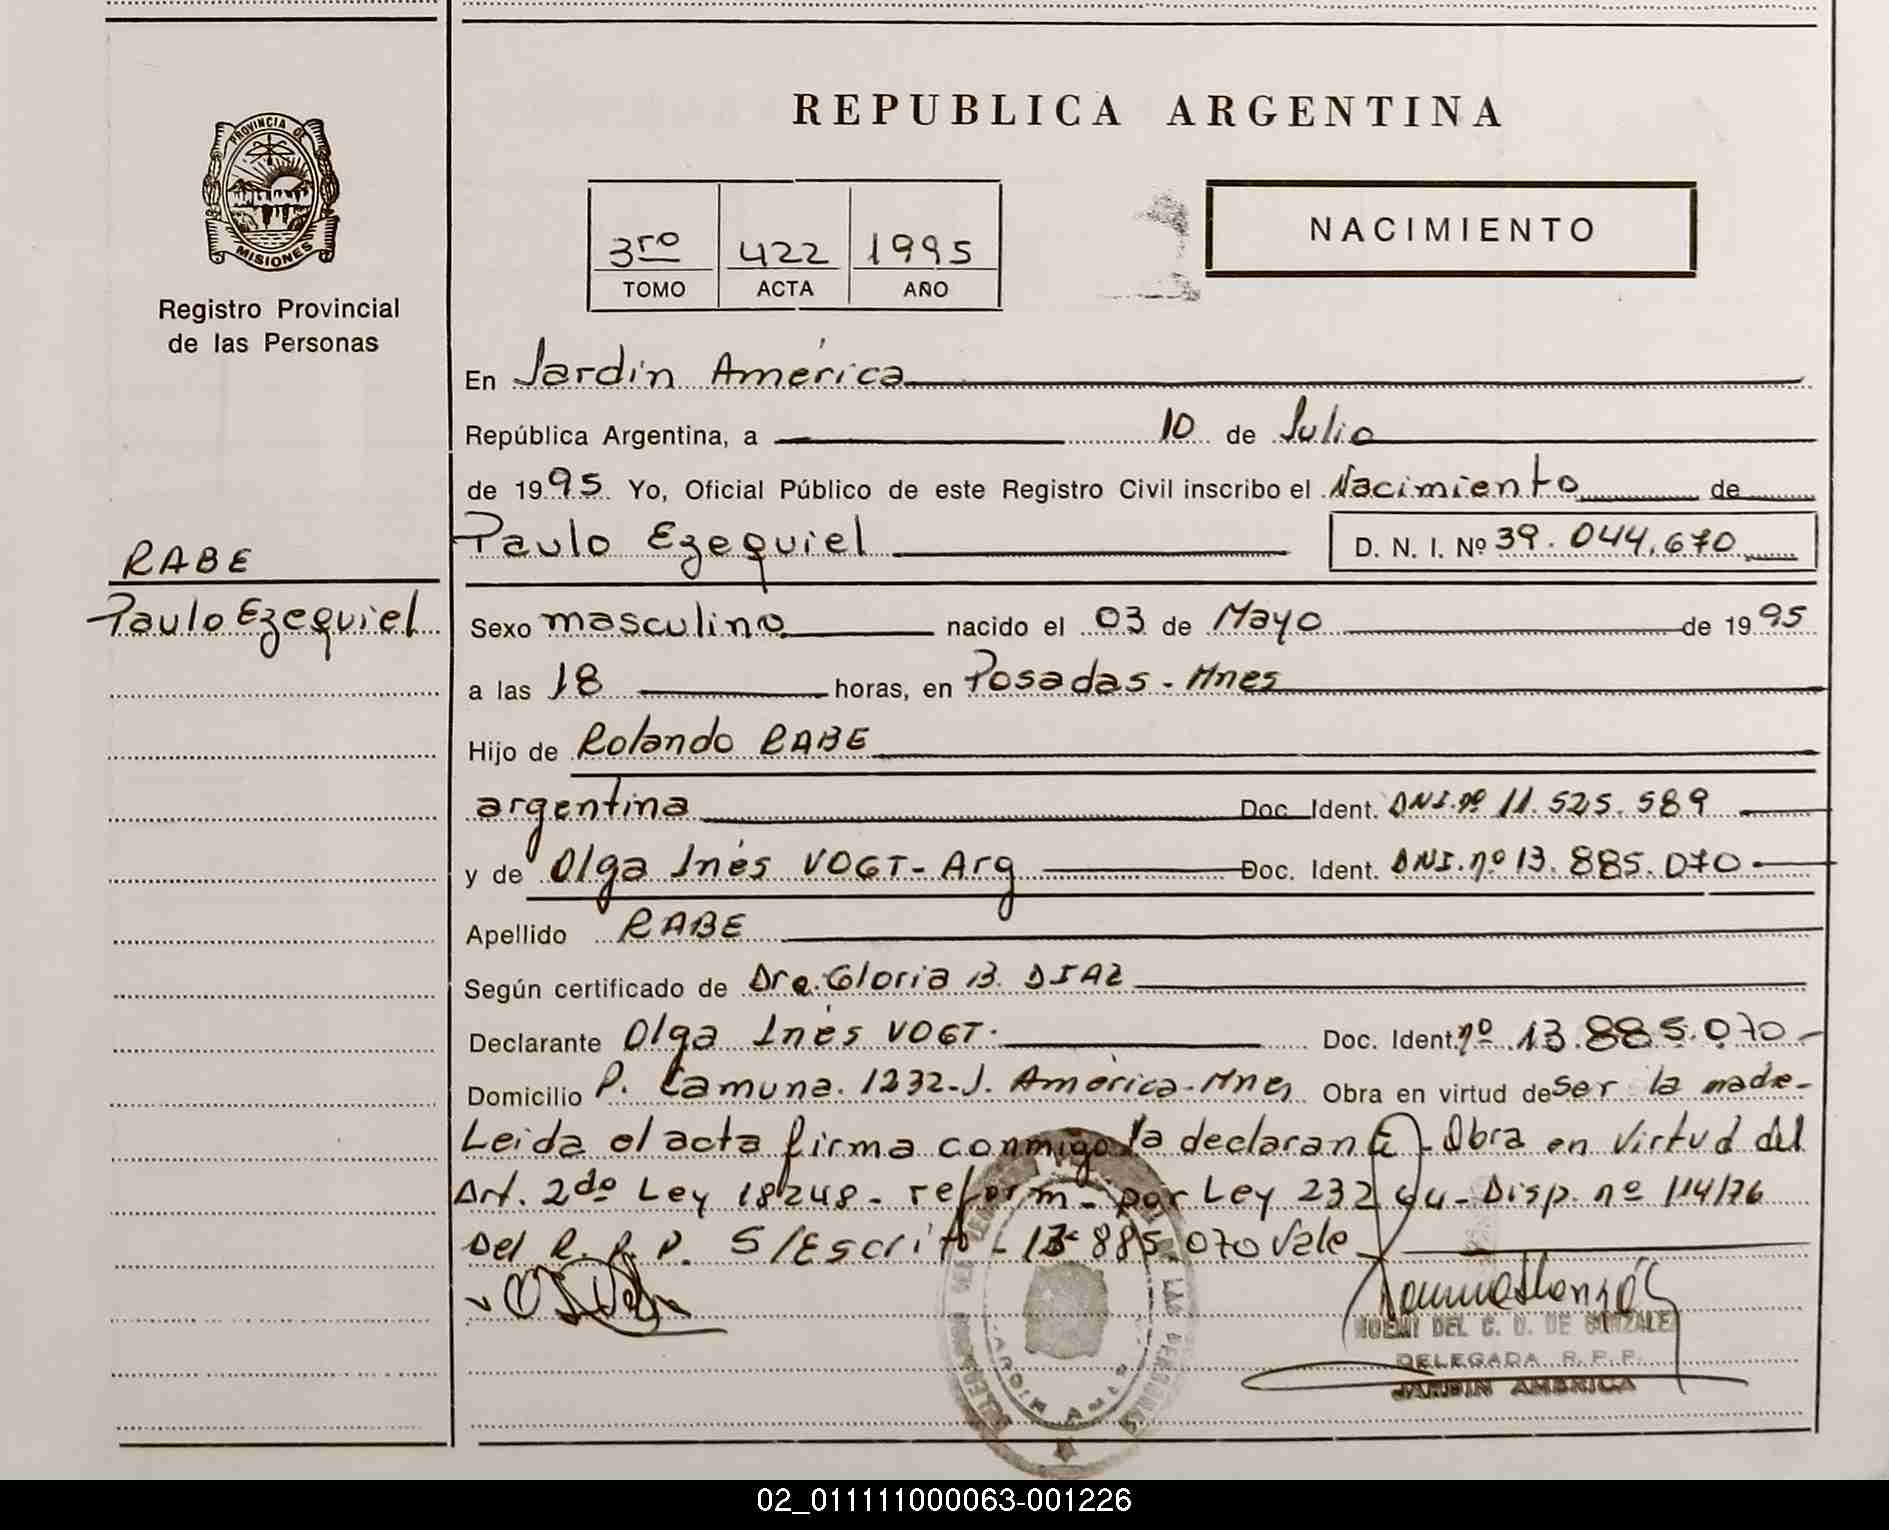 PROVINCIA DE
MISIONES
Registro Provincial
de las Personas
RABE
Paulo Ezequiel
REPUBLICA ARGENTINA
3ro 422 1995
TOMO ACTA AÑO
NACIMIENTO
En Jardín América
República Argentina, a 10 de Julio
de 1995 Yo, Oficial Público de este Registro Civil inscribo el Nacimiento de
Paulo Ezequiel D. N. I. Nº 39.044.670
Sexo masculino nacido el 03 de Mayo de 1995
a las 18 horas, en Posadas - Mnes
Hijo de Rolando RABE
argentina Doc. Ident. DNI. nº 11.525.589
y de Olga Inés VOGT - Arg Doc. Ident. DNI. nº 13.885.070
Apellido RABE
Según certificado de Dra. Gloria B. DIAZ
Declarante Olga Inés VOGT. Doc. Ident. nº 13.885.070
Domicilio P. Camuna. 1232 - J. América - Mnes Obra en virtud de ser la madre -
Leida el acta firma conmigo la declarante - Obra en virtud del
Art. 2do Ley 18248 - reform - por Ley 232 - Disp. nº 114/76
Del R. P. P. S/Escrito - 13.885.070 Vale
NOEMI DEL C. D. DE GONZALEZ
DELEGADA R.P.P.
JARDIN AMERICA
02_011111000063-001226